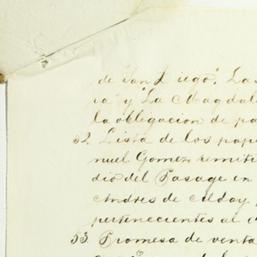 de San Diego". La
ra" y "La Magdal
la obligacion de pa
52. Lista de los pape
nuel Gomez remite
dio del Pasage en
Andres de Alday,
pertenecientes al
53. Promesa de venta